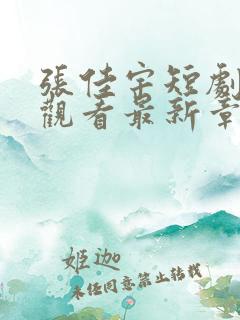 張佳宇短劇
觀看最新章
姬迦
未經同意禁止轉載